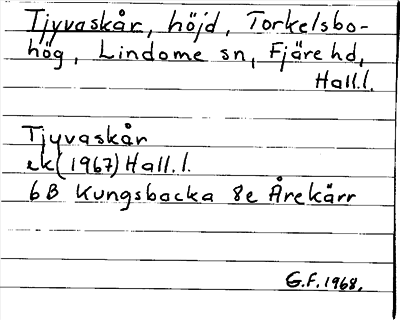 Tjyvaskår, höjd, Torkelsbo-
hög, Lindome sn, Fjäre hd,
Hall.l.
Tjyvaskår
ek (1967) Hall.l.
6B Kungsbacka 8e Årekärr
G.F. 1968.